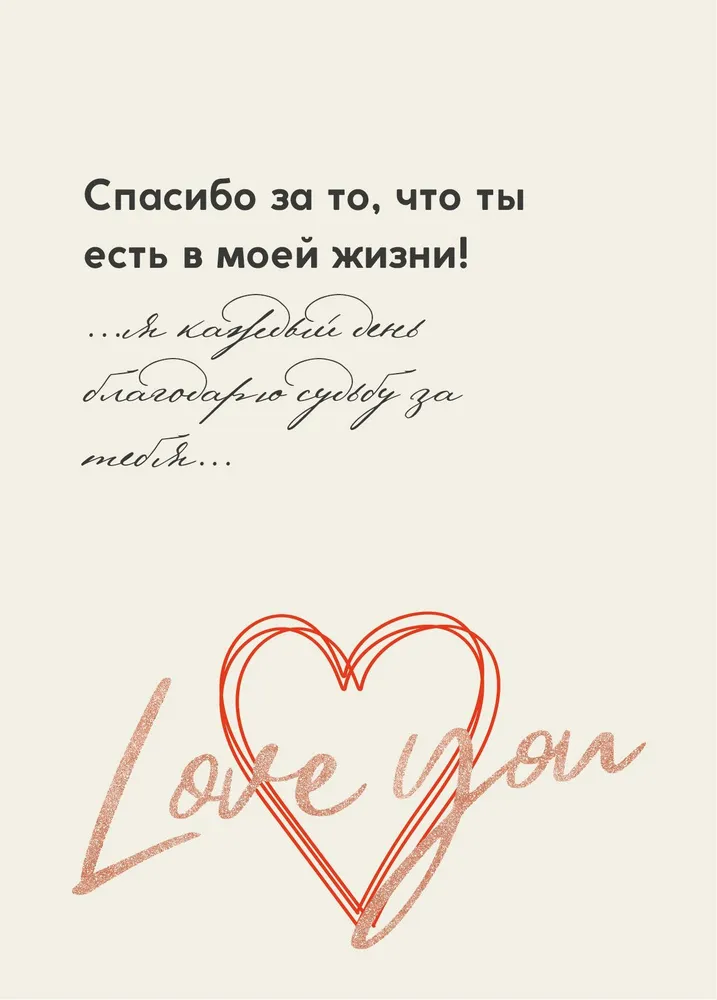 Спасибо за то, что ты
есть в моей жизни!
...я каждый день
благодарю судьбу за
тебя...
Love you